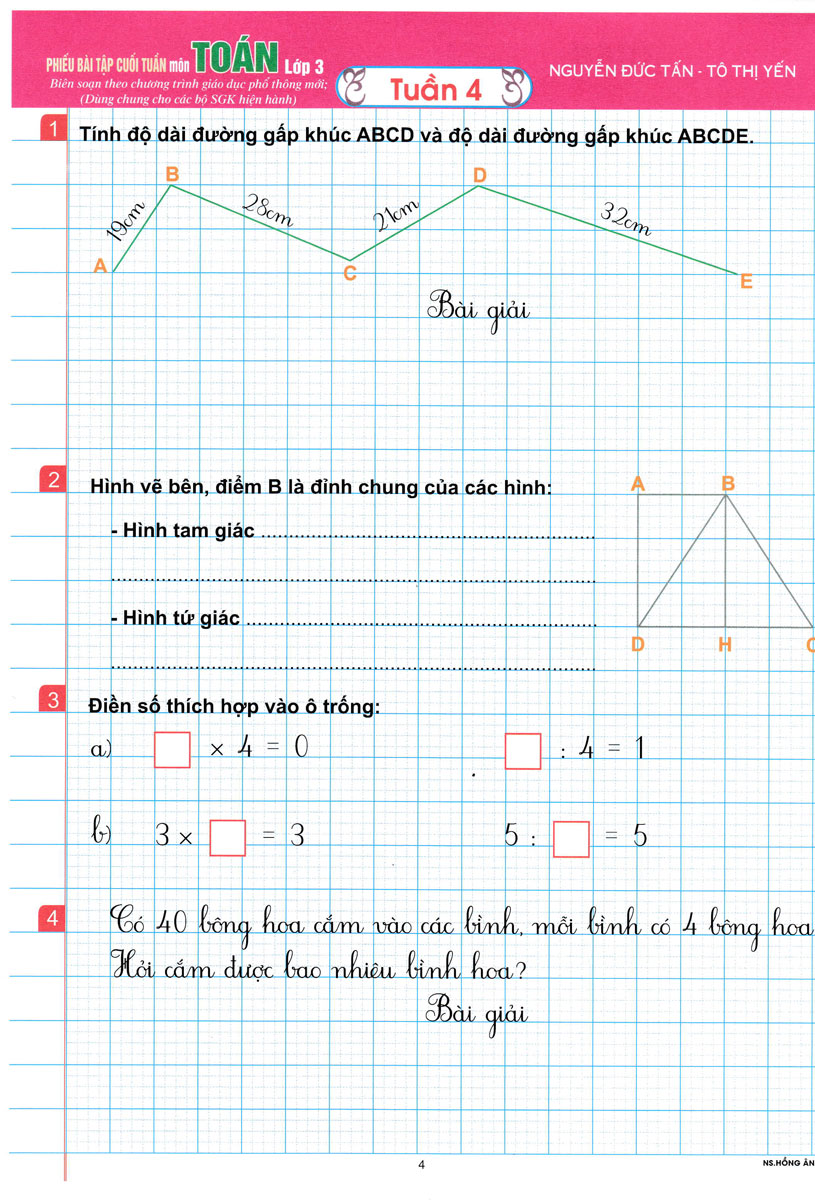 PHIẾU BÀI TẬP CUỐI TUẦN môn TOÁN Lớp 3
Biên soạn theo chương trình giáo dục phổ thông mới:
(Dùng chung cho các bộ SGK hiện hành)
Tuần 4
NGUYỄN ĐỨC TẤN - TÔ THỊ YẾN
1 Tính độ dài đường gấp khúc ABCD và độ dài đường gấp khúc ABCDE.
B D
19cm 28cm 21cm 32cm
A C E
Bài giải
2 Hình vẽ bên, điểm B là đỉnh chung của các hình:
A B
- Hình tam giác ..........................................................
....................................................................................
- Hình tứ giác .............................................................
....................................................................................
D H C
3 Điền số thích hợp vào ô trống:
a) □ × 4 = 0 □ : 4 = 1
b) 3 × □ = 3 5 : □ = 5
4 Có 40 bông hoa cắm vào các bình, mỗi bình có 4 bông hoa
Hỏi cắm được bao nhiêu bình hoa?
Bài giải
4
NS.HỒNG ÂN